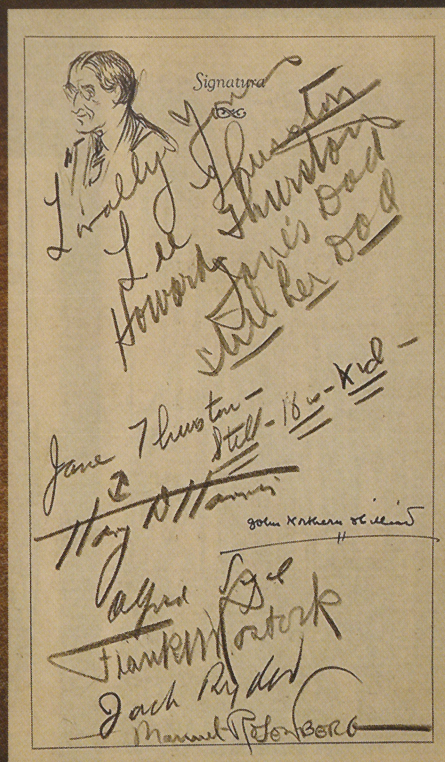 Signatura
Loyally Yours
Lee Thurston
Howard Thurston
Jane's Dad
still her Dad
Jane Thurston -
Still - His - Kid -
&
Harry
John Northern Hilliard
Alfred Segal
Frank Bostock
Jack Ryder
Manuel ROSENBERG